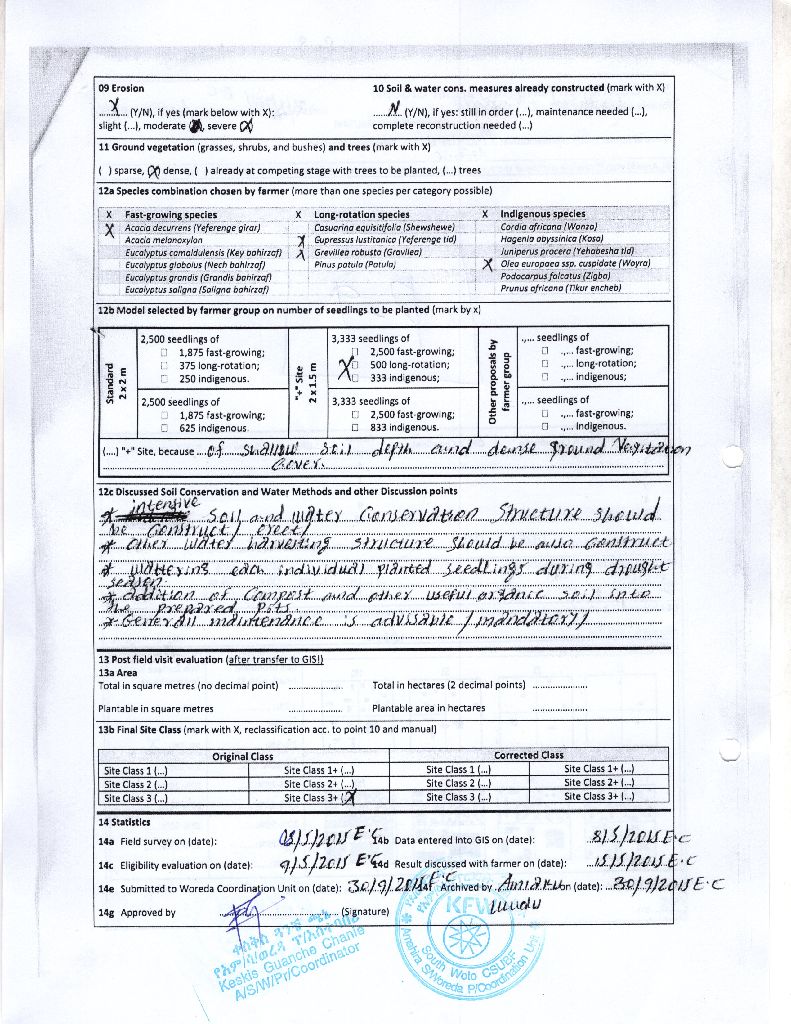 09 Erosion
10 Soil & water cons. measures already constructed (mark with X)
..X.. (Y/N), if yes (mark below with X):
..N.. (Y/N), if yes: still in order (...), maintenance needed (...),
slight (...), moderate , severe (X)
complete reconstruction needed (...)
11 Ground vegetation (grasses, shrubs, and bushes) and trees (mark with X)
( ) sparse, (X) dense, ( ) already at competing stage with trees to be planted, (...) trees
12a Species combination chosen by farmer (more than one species per category possible)
X Fast-growing species X Long-rotation species X Indigenous species
X Acacia decurrens (Yeferenge girar) Casuarina equisitifolia (Shewshewe) Cordia africana (Wanza)
Acacia melonoxylon X Cupressus lustitanica (Yeferenge tid) Hagenia abyssinica (Koso)
Eucalyptus camaldulensis (Key bahirzaf) X Grevillea robusta (Gravilea) Juniperus procera (Yehabesha tid)
Eucalyptus globolus (Nech bahirzaf) Pinus patula (Patula) X Olea europaea ssp. cuspidate (Woyra)
Eucalyptus grandis (Grandis bahirzaf) Podocarpus falcatus (Zigba)
Eucalyptus saligna (Saligna bahirzaf) Prunus africana (Tikur encheb)
12b Model selected by farmer group on number of seedlings to be planted (mark by x)
Standard
2 x 2 m
2,500 seedlings of
1,875 fast-growing;
375 long-rotation;
250 indigenous.
2,500 seedlings of
1,875 fast-growing;
625 indigenous.
"+" Site
2 x 1.5 m
3,333 seedlings of
2,500 fast-growing;
X 500 long-rotation;
333 indigenous;
3,333 seedlings of
2,500 fast-growing;
833 indigenous.
Other proposals by
farmer group
.,... seedlings of
.,... fast-growing;
.,... long-rotation;
.,... indigenous;
.,... seedlings of
.,... fast-growing;
.,... Indigenous.
(...) "+" Site, because ... of shallow soil depth and dense ground Vegitation
cover.
12c Discussed Soil Conservation and Water Methods and other Discussion points
* intensive Soil and water Conservation Structure should
be Construct/ erect/
* other water harvesting structure should be also construct
* wattering each individual planted seedlings during drought
season.
* addition of compost and other useful organic soil into
the prepared pits.
* Generall maintenance is advisable / mandatory/
13 Post field visit evaluation (after transfer to GIS!)
13a Area
Total in square metres (no decimal point) .................. Total in hectares (2 decimal points) ..................
Plantable in square metres .................. Plantable area in hectares ..................
13b Final Site Class (mark with X, reclassification acc. to point 10 and manual)
Original Class Corrected Class
Site Class 1 (...) Site Class 1+ (...) Site Class 1 (...) Site Class 1+ (...)
Site Class 2 (...) Site Class 2+ (...) Site Class 2 (...) Site Class 2+ (...)
Site Class 3 (...) Site Class 3+ (X) Site Class 3 (...) Site Class 3+ (...)
14 Statistics
14a Field survey on (date): 08/5/2015 E.C 14b Data entered into GIS on (date): 8/5/2015 E.C
14c Eligibility evaluation on (date): 9/5/2015 E.C 14d Result discussed with farmer on (date): 15/5/2015 E.C
14e Submitted to Woreda Coordination Unit on (date): 30/9/2015 E.C 14f Archived by on (date): 30/9/2015 E.C
14g Approved by .................. (Signature)
Keskis Guanche Chanie
A/S/W/Pr/Coordinator
KFW
South Wolo CSUBF